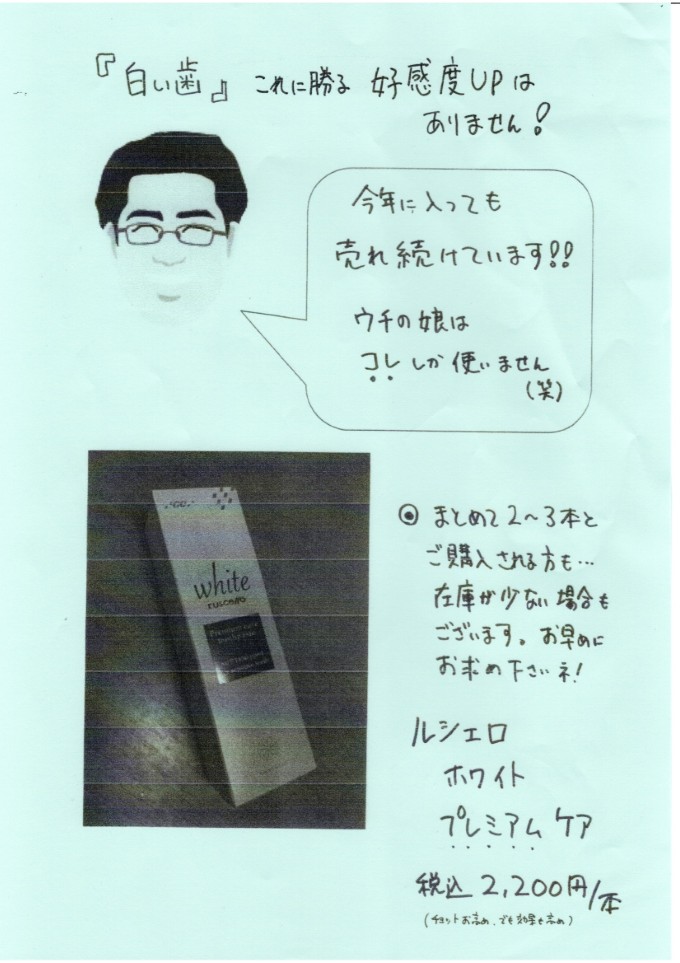 『白い歯』 これに勝る 好感度UPは
ありません!
今年に入っても
売れ続けています!!
ウチの娘は
コレしか使いません
(笑)
GC
white
RUSCELLO
Premium care
◉ まとめて2〜3本と
ご購入される方も…
在庫が少ない場合も
ございます。お早めに
お求め下さいネ!
ルシェロ
ホワイト
プレミアムケア
税込 2,200円/本
(チョットお高め、でも効果も高め)